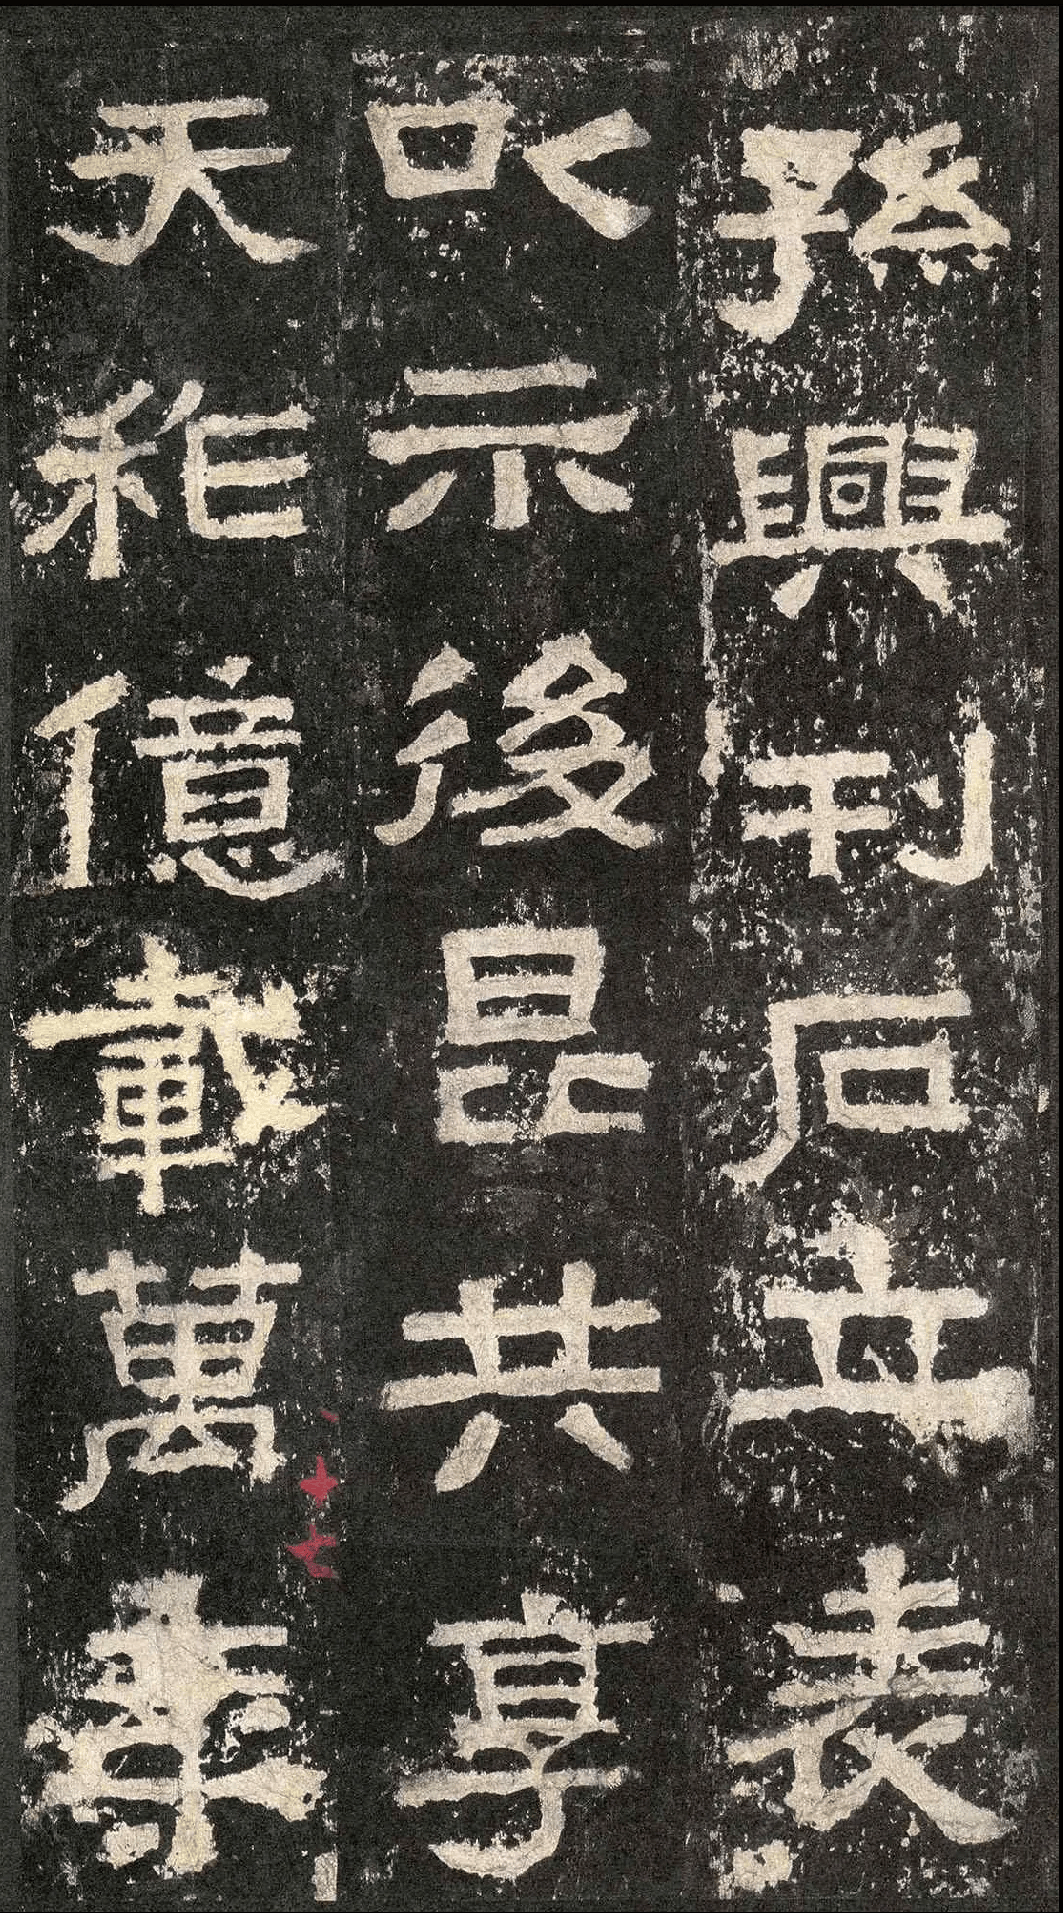 孫興刊石立表
以示後昆共享
天祚億載萬年